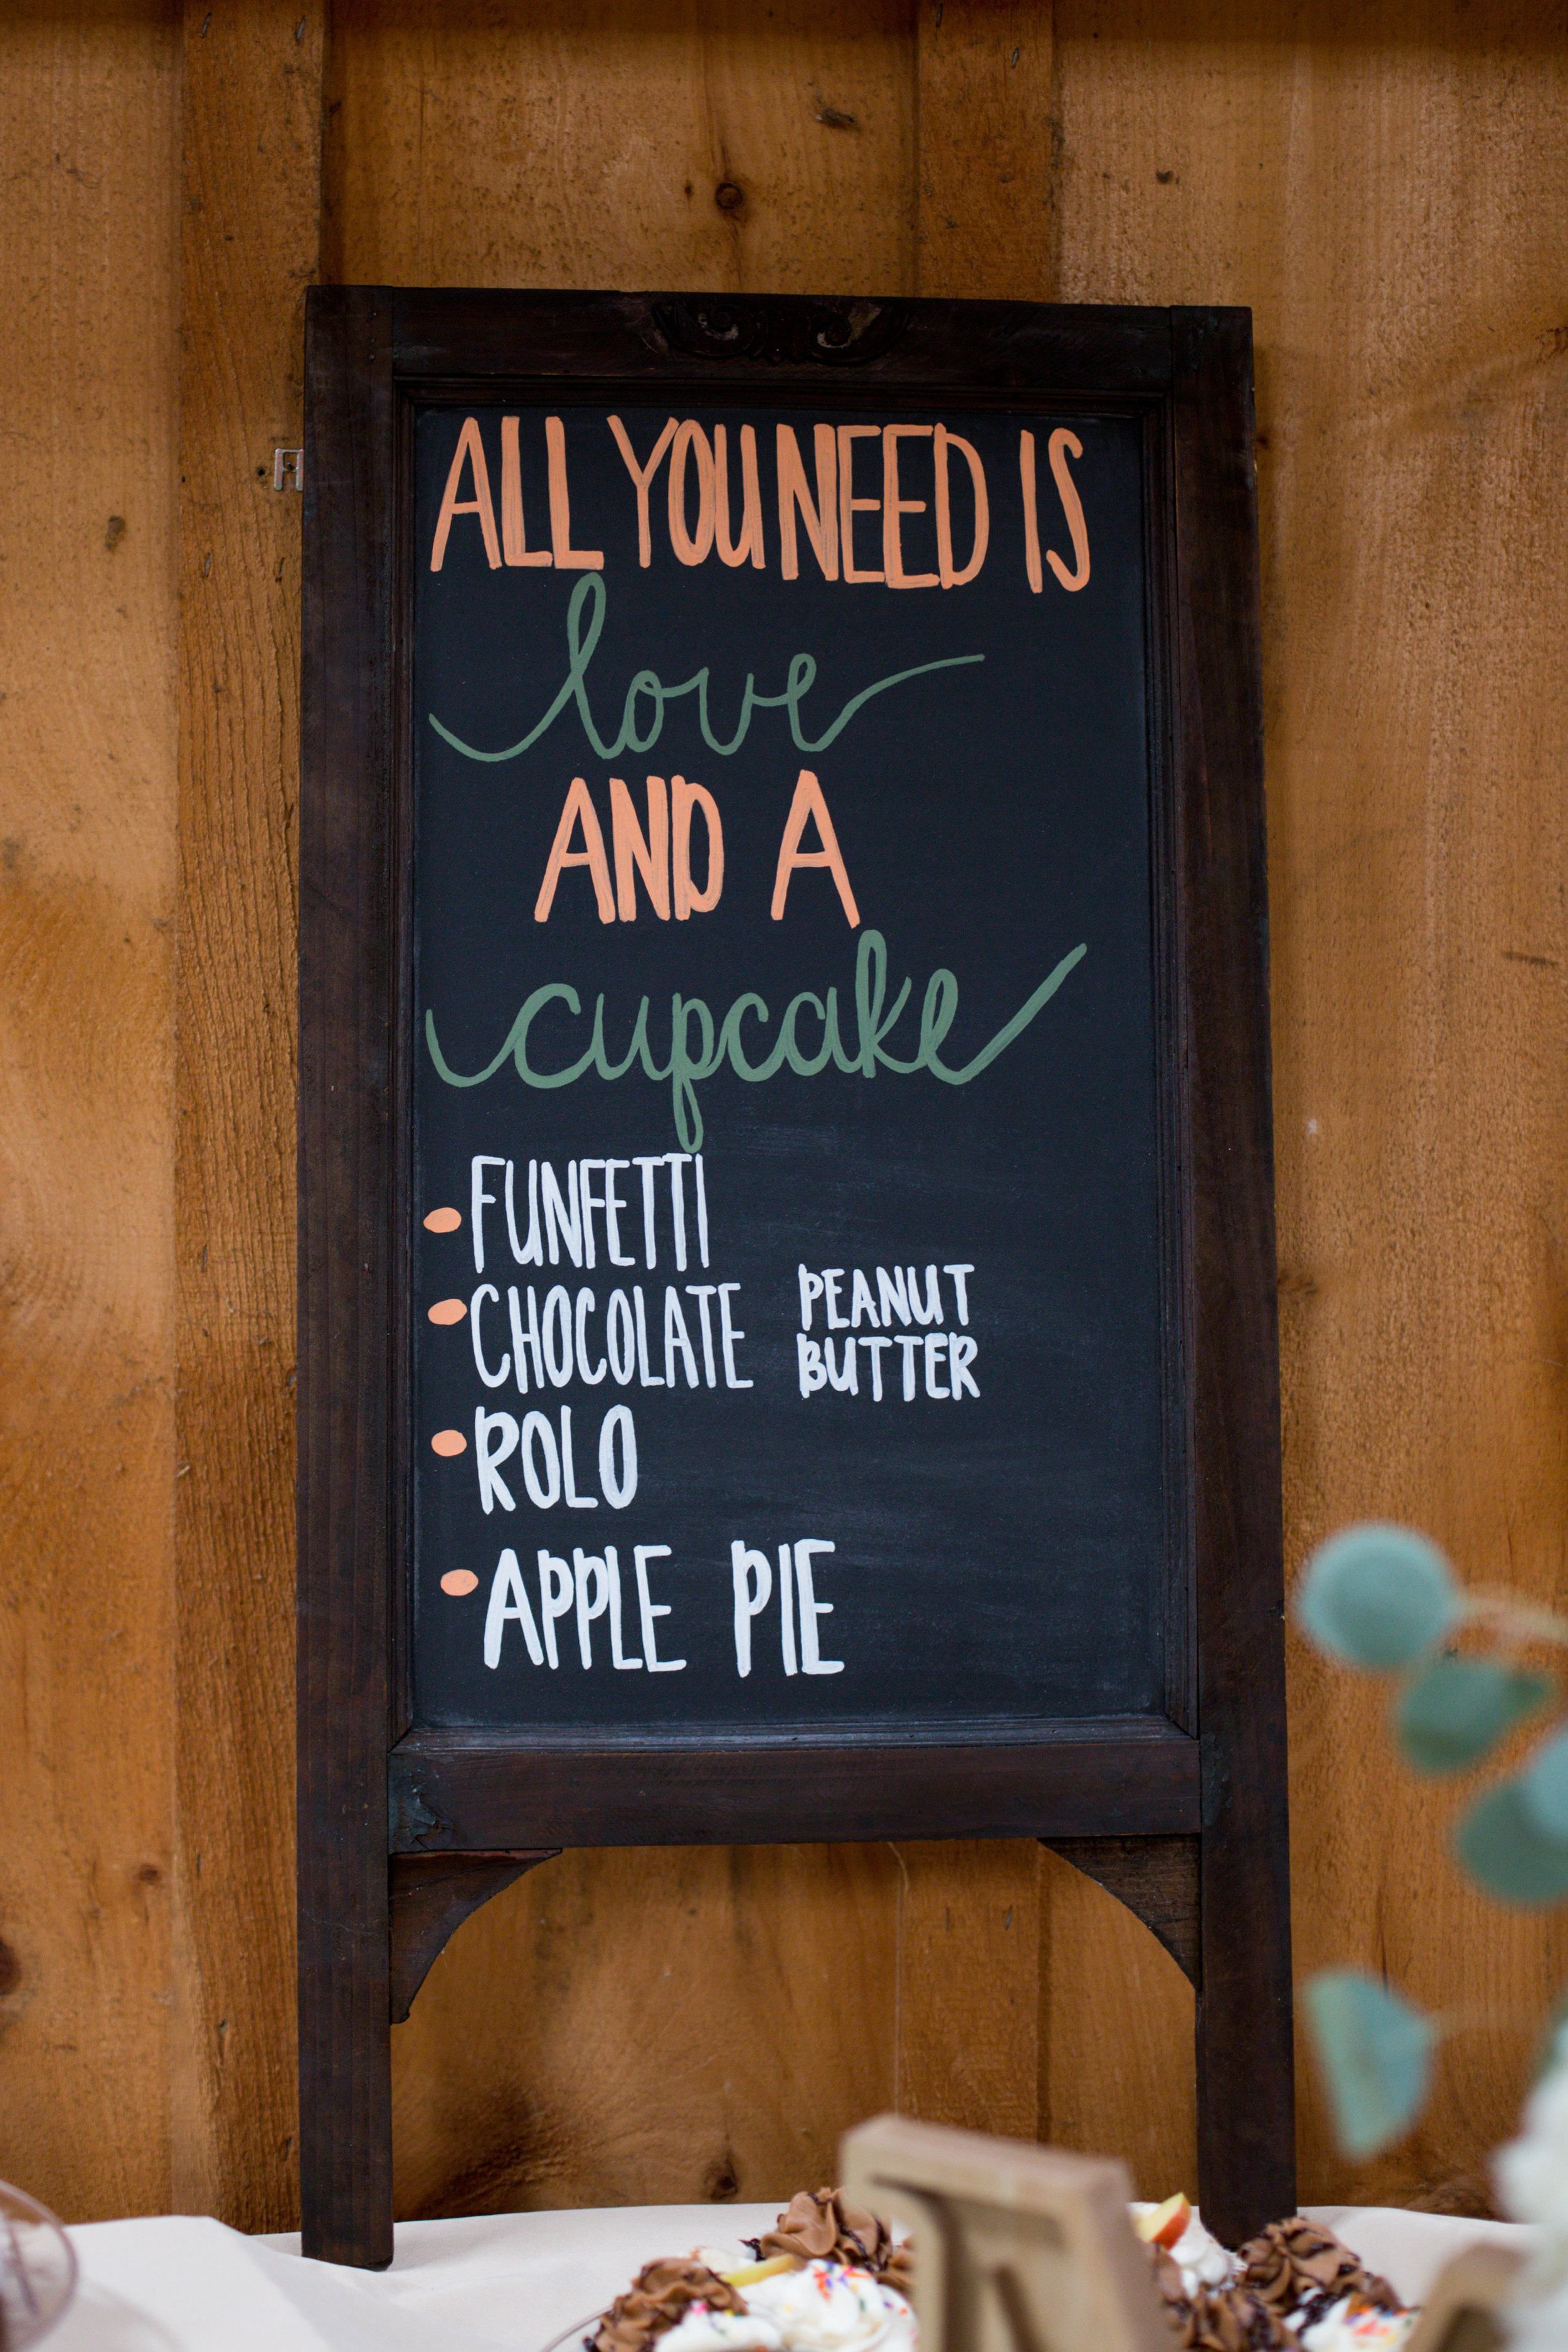 ALL YOU NEED IS
love
AND A
cupcake
FUNFETTI
CHOCOLATE PEANUT
BUTTER
ROLO
APPLE PIE